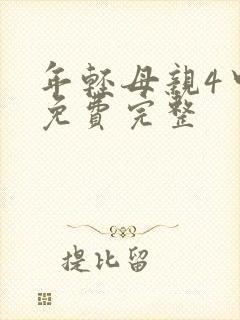 年輕母親4中
免費完整
提比留